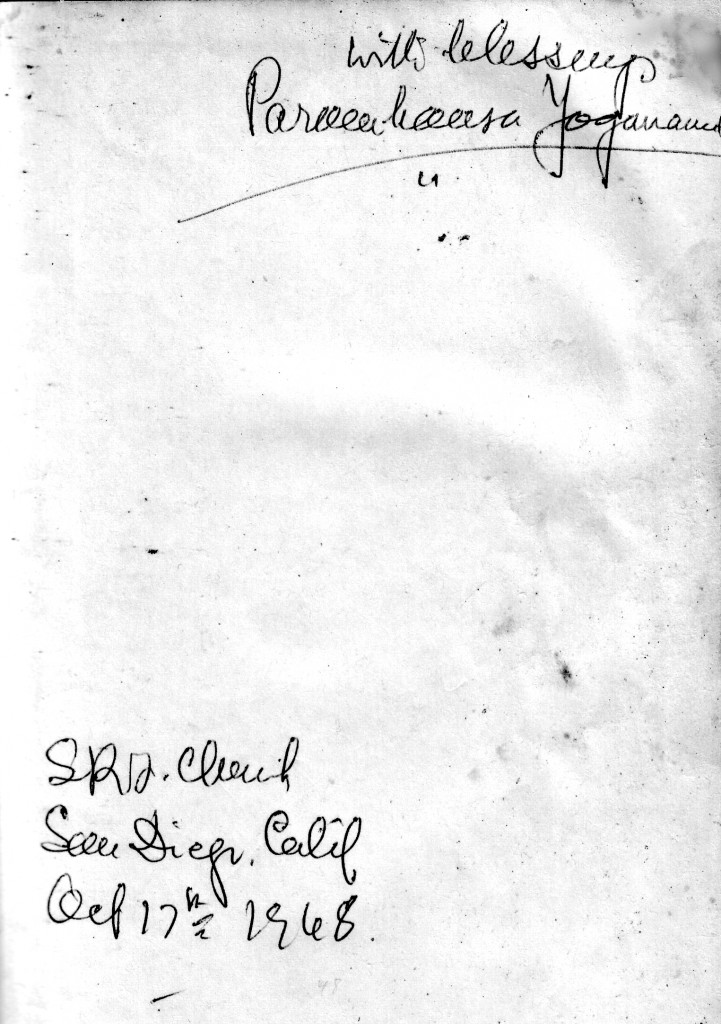 with blessings
Paramahansa Yoganand
SRF. Church
San Diego, Calif
Oct 17th 1948.
48